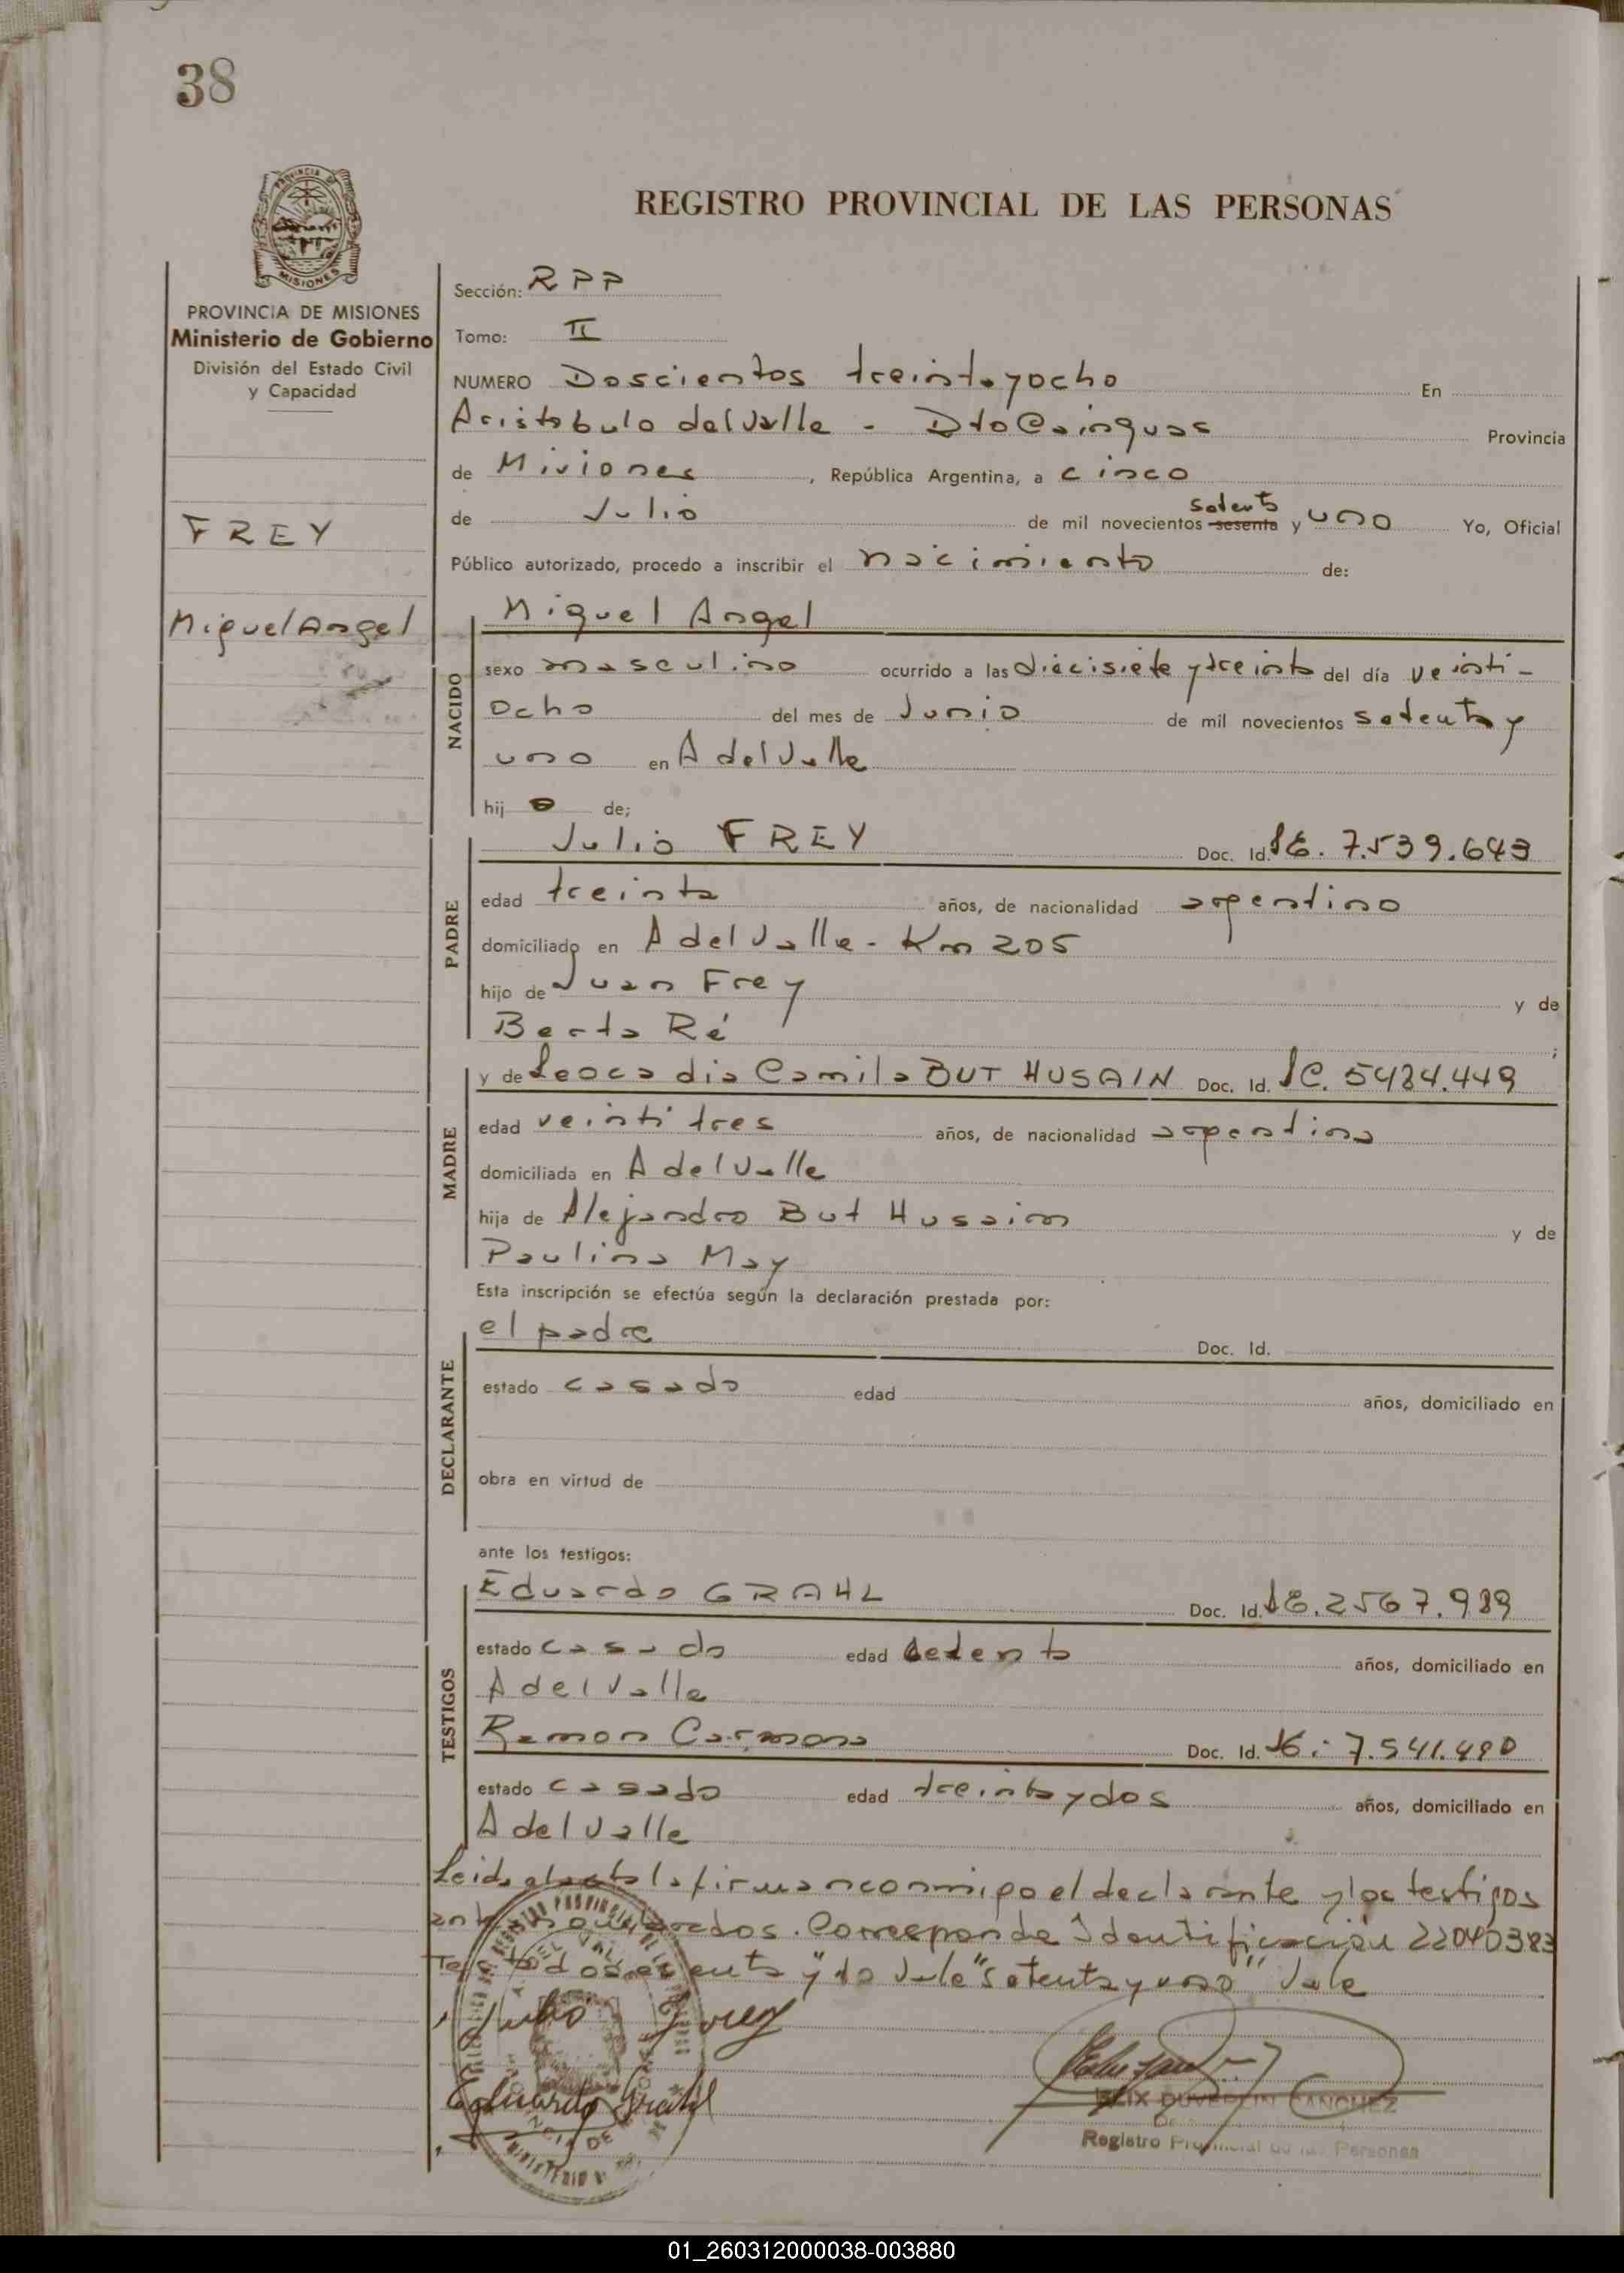 38
REGISTRO PROVINCIAL DE LAS PERSONAS
PROVINCIA DE MISIONES
Ministerio de Gobierno
División del Estado Civil
y Capacidad
FREY
Miguel Angel
Sección: RPP
Tomo: II
NUMERO Doscientos treinta y ocho En
Aristobulo del Valle - Dto Cainguas Provincia
de Misiones, República Argentina, a cinco
setenta
de Julio de mil novecientos sesenta y uno Yo, Oficial
Público autorizado, procedo a inscribir el nacimiento de:
NACIDO
Miguel Angel
sexo masculino ocurrido a las diecisiete y treinta del día veinti-
ocho del mes de Junio de mil novecientos setenta y
uno en A del Valle
hijo de;
PADRE
Julio FREY Doc. Id. 7.539.643
edad treinta años, de nacionalidad argentino
domiciliado en A del Valle - Km 205
hijo de Juan Frey y de
Berta Ré ;
MADRE
y de Leocadia Camila BUT HUSAIN Doc. Id. LC. 5484.449
edad veintitres años, de nacionalidad argentina
domiciliada en A del Valle
hija de Alejandro But Husain y de
Paulina May
Esta inscripción se efectúa según la declaración prestada por:
DECLARANTE
el padre Doc. Id.
estado casado edad años, domiciliado en
obra en virtud de
ante los testigos:
TESTIGOS
Eduardo GRAHL Doc. Id. 2567.989
estado casado edad setenta años, domiciliado en
A del Valle
Ramon Carmona Doc. Id. 7.541.490
estado casado edad treinta y dos años, domiciliado en
A del Valle
Leida el acta la firman conmigo el declarante y los testigos
. Corresponde Identificación 22040383
Vale "setenta y uno" Vale
Julio Frey
Eduardo Grahl
SANCHEZ
Registro Provincial de las Personas
01_260312000038-003880